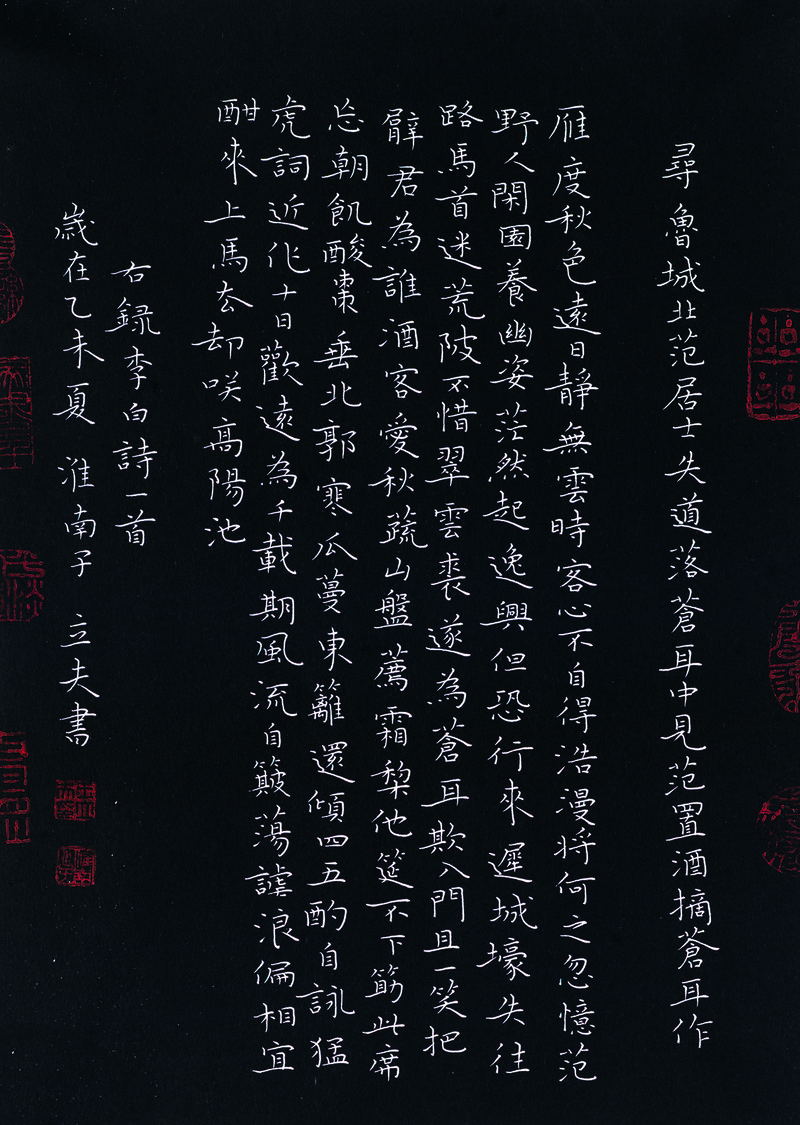 尋魯城北范居士失道落蒼耳中見范置酒摘蒼耳作
雁度秋色遠日靜無雲時客心不自得浩漫將何之忽憶范
野人閑園養幽姿茫然起逸興但恐行來遲城壕失往
路馬首迷荒陂不惜翠雲裘遂為蒼耳欺入門且一笑把
臂君為誰酒客愛秋蔬山盤薦霜梨他筵不下筯此席
忘朝飢酸棗垂北郭寒瓜蔓東籬還傾四五酌自詠猛
虎詞近作十日歡遠為千載期風流自簸蕩謔浪偏相宜
酣來上馬去却咲高陽池
右録李白詩一首
歲在乙未夏 淮南子 立夫書